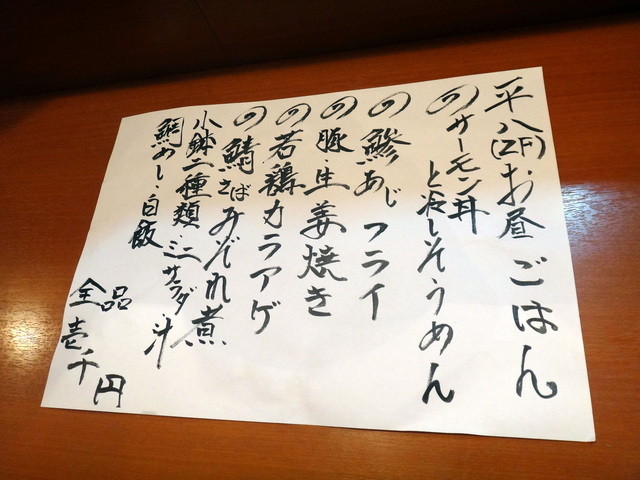 平八(2F)お昼ごはん
のサーモン丼
と冷しそうめん
の鯵あじフライ
の豚・生姜焼き
の若鶏カラアゲ
の鯖さばみぞれ煮
小鉢二種類 ミニサラダ・汁
鯛めし・白飯
全品
壱千円